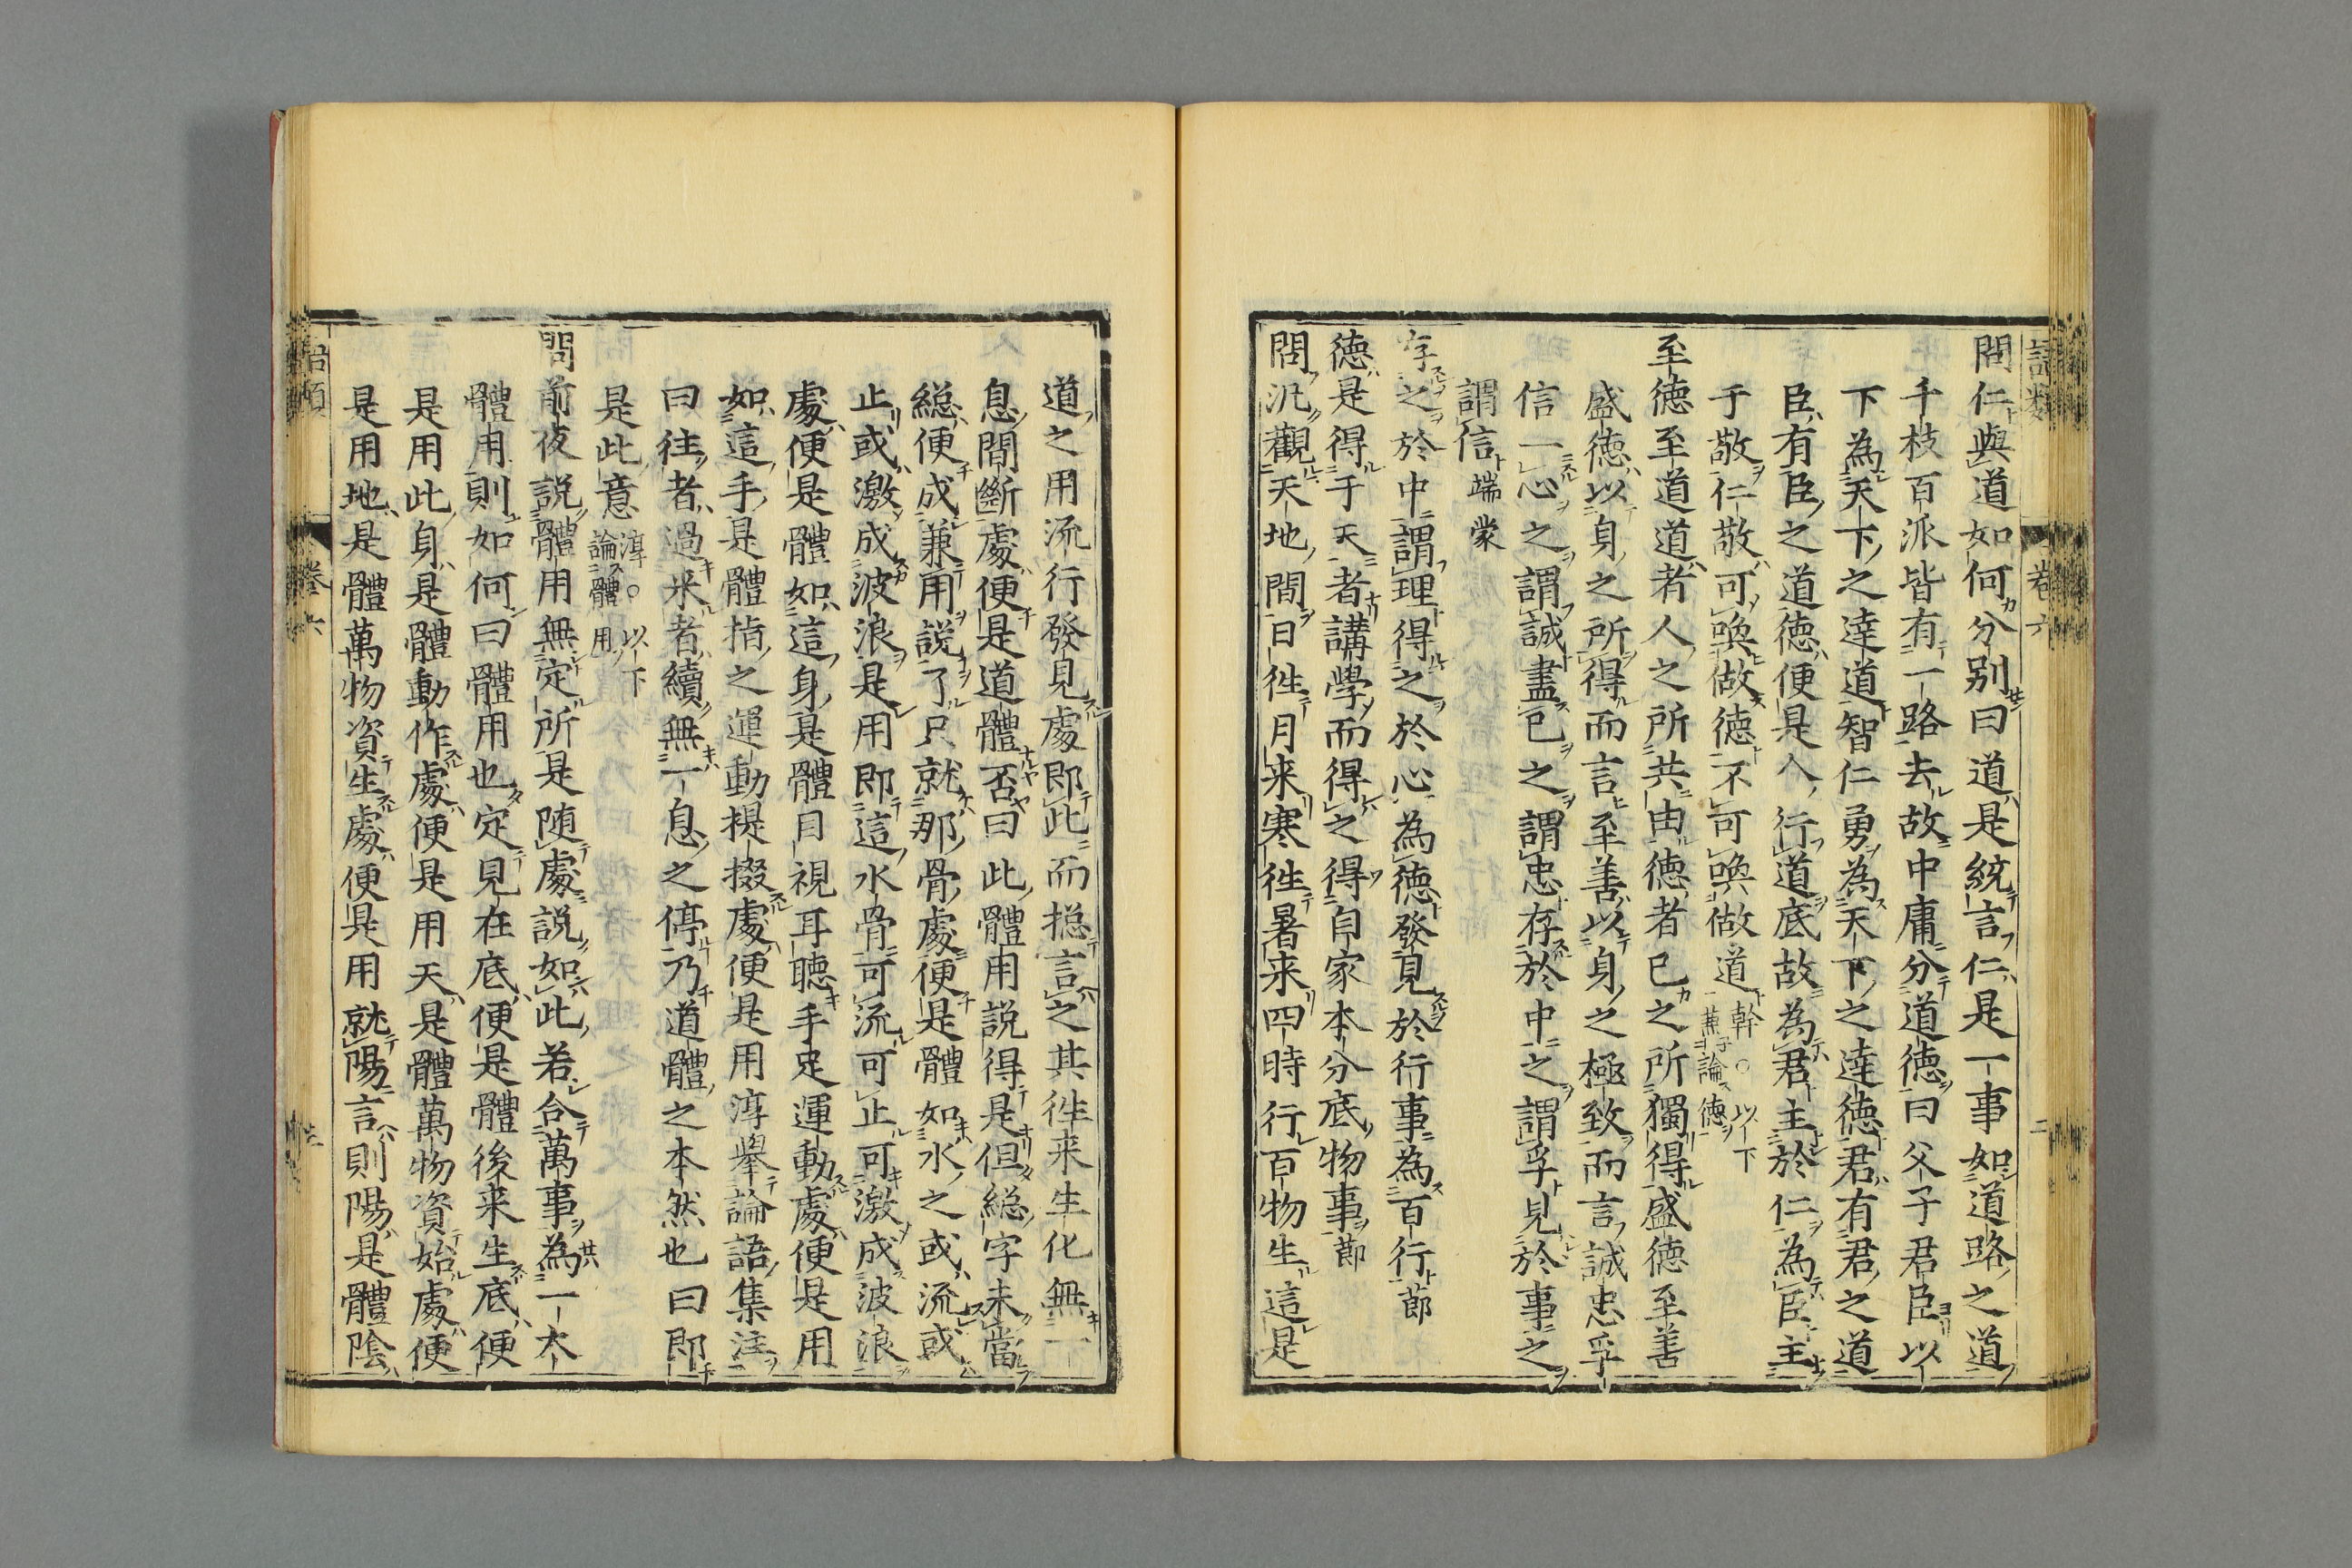 語類 卷六 二
問仁與道如何分别曰道是統言仁是一事如道路之道
千枝百派皆有一路去故中庸分道徳曰父子君臣以
下為天下之達道智仁勇為天下之達徳君有君之道
臣有臣之道徳便是人行道底故為君主於仁為臣主
于敬仁敬可喚做徳不可喚做道幹〇以下兼論徳
至徳至道道者人之所共由徳者已之所獨得盛徳至善
盛徳以身之所得而言至善以身之極致而言誠忠孚
信一心之謂誠盡已之謂忠存於中之謂孚見於事之
謂信端蒙
存之於中謂理得之於心為徳發見於行事為百行節
徳是得于天者講學而得之得自家本分底物事節
問汎觀天地間日徃月来寒徃暑来四時行百物生這是
道之用流行發見處即此而揔言之其徃来生化無一
息間斷處便是道體否曰此體用説得是但緫字未當
緫便成兼用説了只就那骨處便是體如水之或流或
止或激成波浪是用即這水骨可流可止可激成波浪
處便是體如這身是體目視耳聴手足運動處便是用
如這手是體指之運動提掇處便是用淳舉論語集注
曰徃者過来者續無一息之停乃道體之本然也曰即
是此意淳〇以下論體用
問前夜説體用無定所是随處説如此若合萬事為一大
體用則如何曰體用也定見在底便是體後来生底便
是用此身是體動作處便是用天是體萬物資始處便
是用地是體萬物資生處便是用就陽言則陽是體陰
語類 卷六